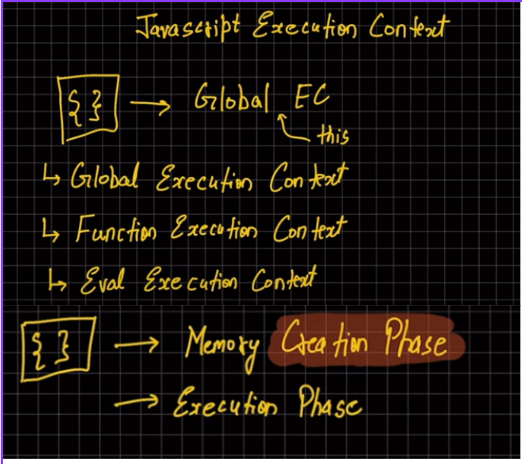 Javascript Execution Context
{ } → Global EC
this
↳ Global Execution Context
↳ Function Execution Context
↳ Eval Execution Context
{ } → Memory Creation Phase
→ Execution Phase